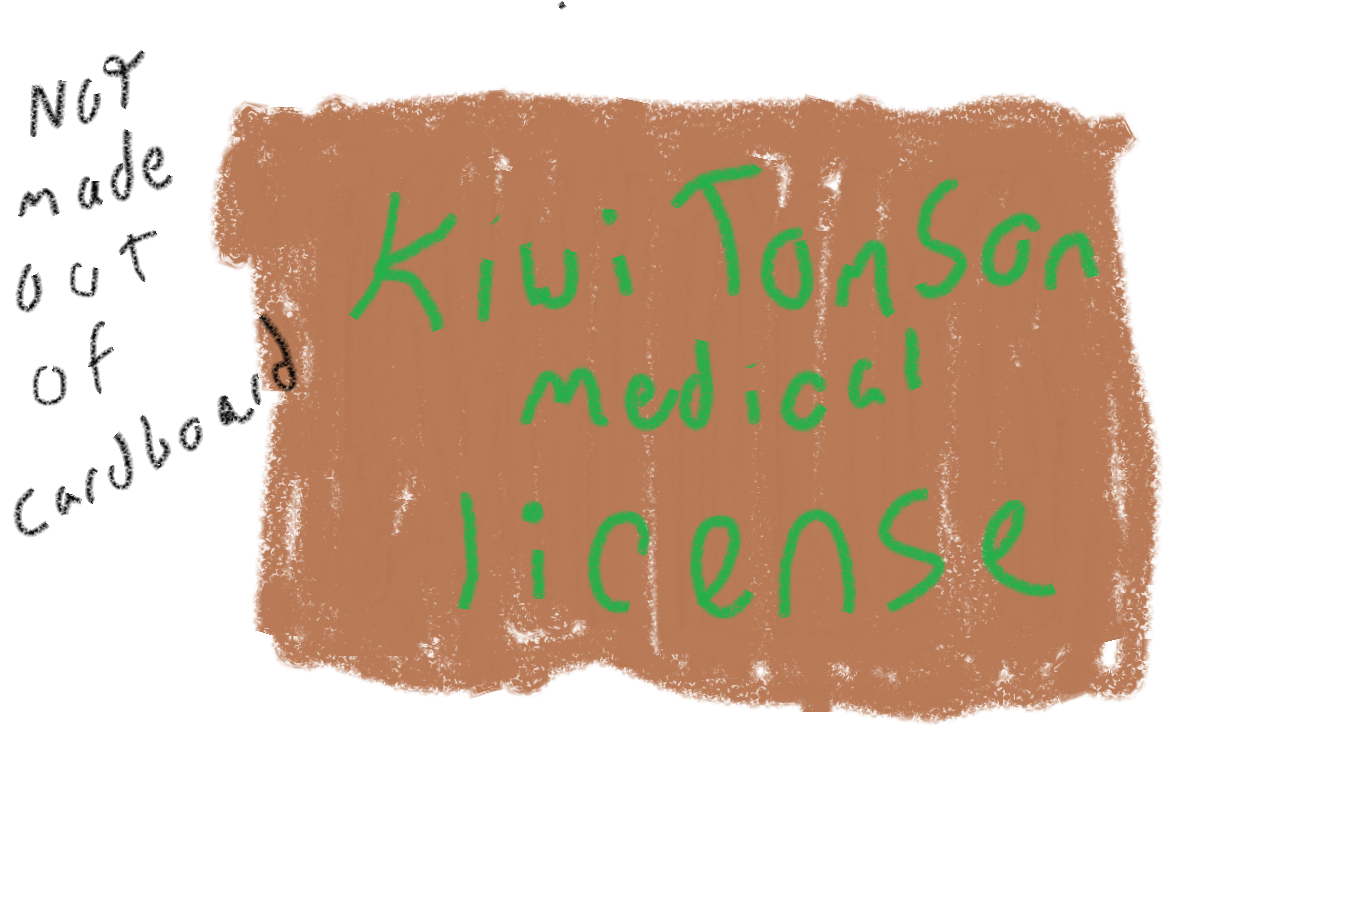 NOT
made
out
of
cardboard
Kiwi Tomson
medical
license